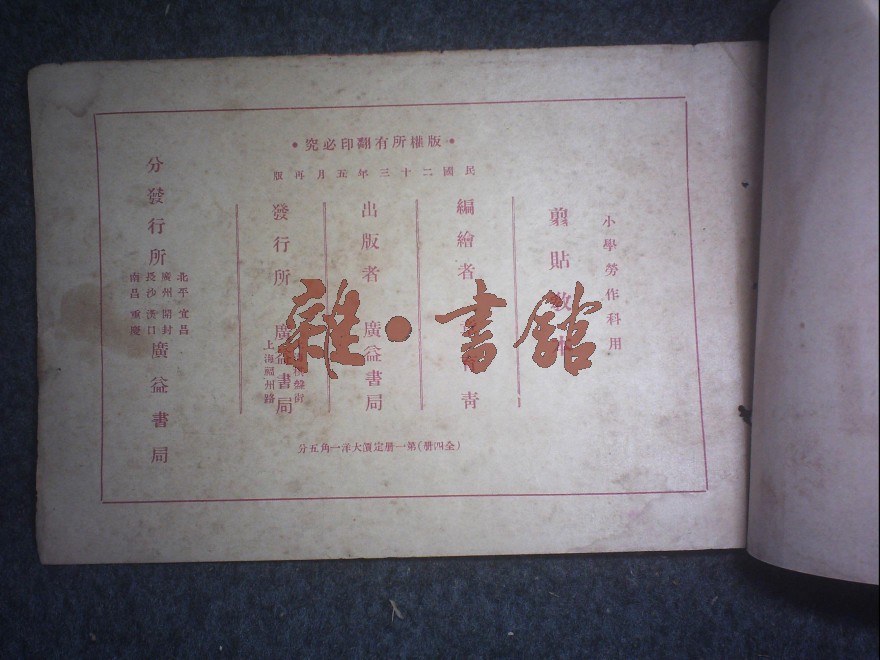 •版權所有翻印必究•
民國二十三年五月再版
小學勞作科用
剪貼教本
編繪者 青
出版者 廣益書局
發行所 廣益書局
盤街
上海福州路
分發行所
北平 宜昌
廣州 開封
長沙 漢口
南昌 重慶
廣益書局
(全四册)第一册定價大洋一角五分
雜·書館